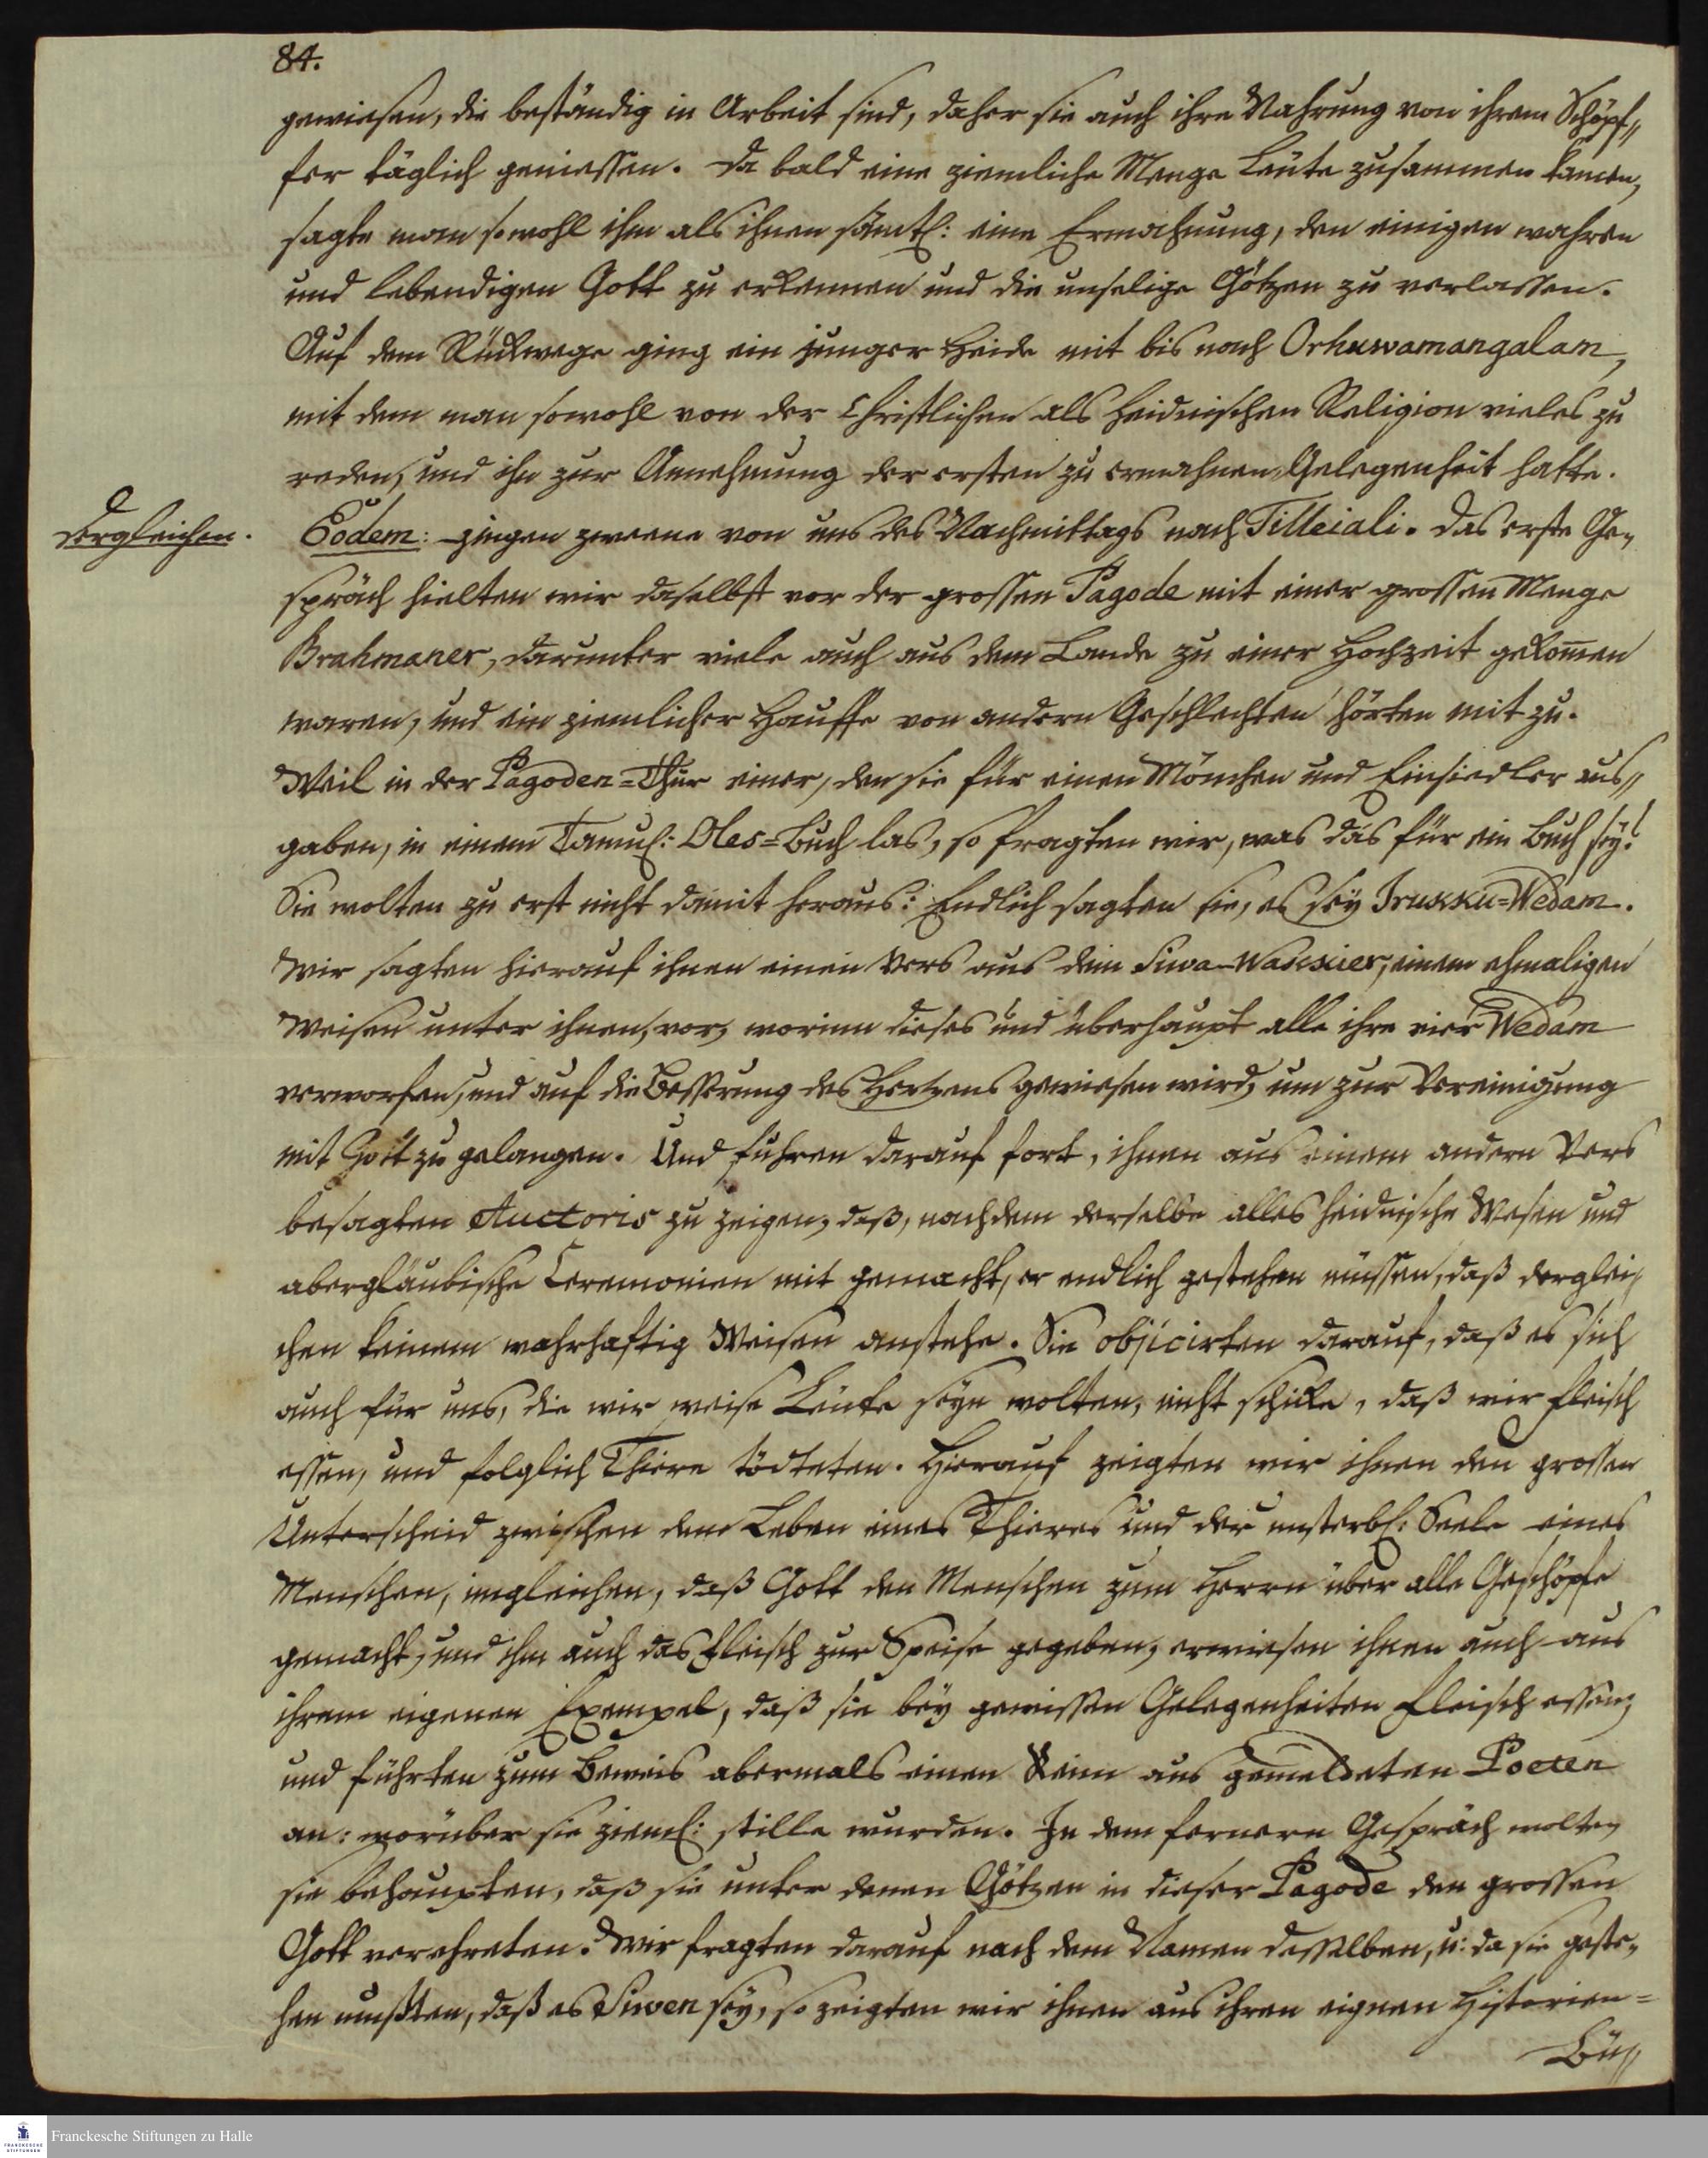 84.
gewiesen, die beständig in Arbeit sind, daher sie auch ihre Nahrung von ihrem Schöpf„
fer täglich geniessen. Da bald eine ziemliche Menge Leute zusammen kamen,
sagte man sowohl ihm als ihnen sämtl: eine Ermahnung, den einigen wahren
und lebendigen Gott zu erkennen und die unselige Götzen zu verlassen.
Auf dem Rückwege ging ein junger Heide mit bis nach Orhuwamangalam,
mit dem man sowohl von der Christlichen als Heidnischen Religion vieles zu
reden, und ihn zur Annehmung der ersten zu ermahnen, Gelegenheit hatte.
dergleichen.
Eodem: gingen zweene von uns des Nachmittags nach Tilleiali. Das erste Ge„
spräch hielten wir daselbst vor der grossen Pagode mit einer grossen Menge
Brahmaner, darunter viele auch aus dem Lande zu einer Hochzeit gekom̄en
waren, und ein ziemlicher Hauffe von andern Geschlechten hörten mit zu.
Weil in der Pagoden=Thür einer, den sie für einen Mönchen und Einsiedler aus„
gaben, in einem Tamul: Oles=Buch las, so fragten wir, was das für ein Buch sey?
Sie wolten zu erst nicht damit heraus: Endlich sagten sie, es sey Irukku=Wedam.
Wir sagten hierauf ihnen einen Vers aus dem Siwa-Waikkier, einem ehmaligen
Weisen unter ihnen, vor, worinn dieses und überhaupt alle ihre vier Wedam
verworfen, und auf die Besserung des Hertzens gewiesen wird, um zur Vereinigung
mit Gott zu gelangen. Und fuhren darauf fort, ihnen aus einem andern Vers
besagten Auctoris zu zeigen, daß, nachdem derselbe alles heidnische Wesen und
abergläubische Ceremonien mit gemacht, er endlich gestehen müssen, daß derglei„
chen keinem wahrhaftig Weisen anstehe. Sie objicirten darauf, daß es sich
auch für uns, die wir weise Leute seyn wolten, nicht schicke, daß wir Fleisch
essen, und folglich Thiere tödteten. Hierauf zeigten wir ihnen den grossen
Unterscheid zwischen dem Leben eines Thieres und der unsterbl: Seele eines
Menschen, imgleichen, daß Gott den Menschen zum Herrn über alle Geschöpfe
gemacht, und ihm auch das Fleisch zur Speise gegeben, erwiesen ihnen auch aus
ihrem eigenen Exempel, daß sie bey gewissen Gelegenheiten Fleisch essen,
und führten zum Beweis abermals einen Reim aus gemeldeten Poeten
an: worüber sie zieml: stille wurden. In dem fernern Gespräch wolten
sie behaupten, daß sie unter denen Götzen in dieser Pagode den grossen
Gott verehreten. Wir fragten darauf nach dem Namen desselben, u: da sie geste„
hen mußten, daß es Siwen sey, so zeigten wir ihnen aus ihren eignen Historien=
Bü„
Franckesche Stiftungen zu Halle